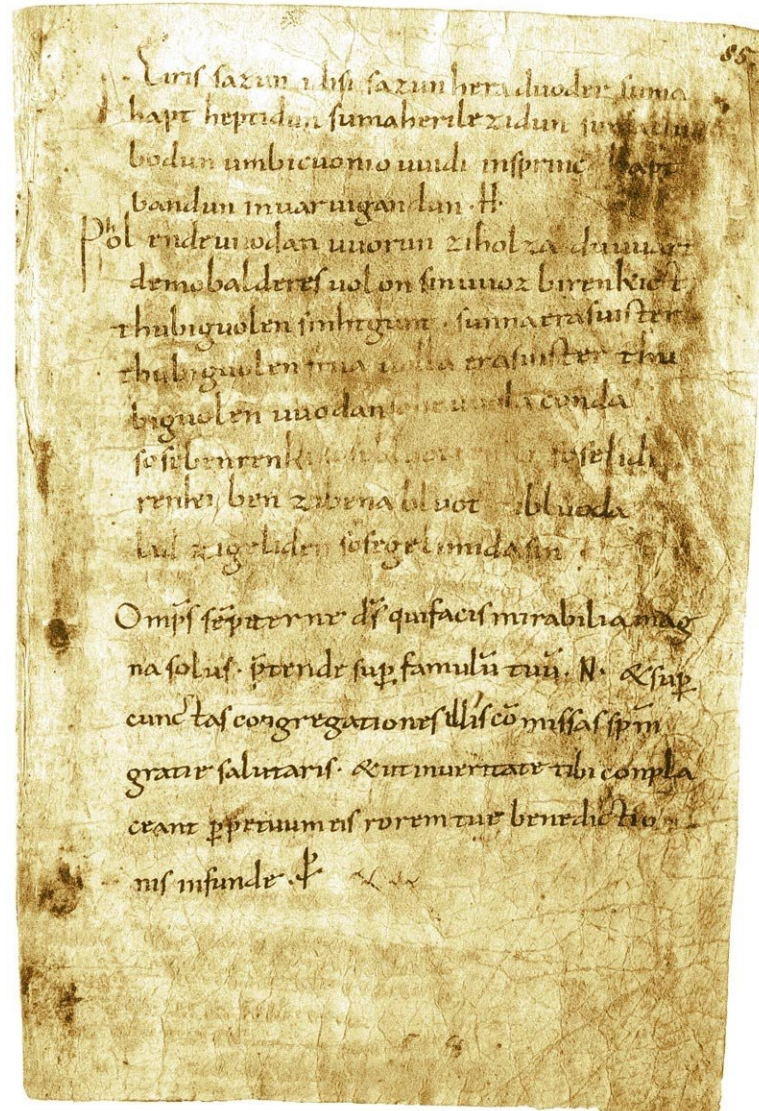 85
Eiris sazun idisi sazun hera duoder suma
hapt heptidun sumaherilezidun
bodun umbicuonio uuidi insprinc hapt
bandun inuar uigandun · H ·
Phol endeuuodan uuorun ziholza duuuart
demobalderes uolon sinuuoz birenkict
thubiguolen sinhtgunt · sunnaerasuister
thubiguolen friia uolla erasuister thu
biguolen uuodan sohe uuolaconda
sosebenrenki sosebluotrenki soselidi
renki ben zibena bluot zibluoda
lid zigeliden sosegelimida sin
Omp̄s sēpiterne d̄s quifacis mirabilia mag
na solus · p̄tende sup̄ famulū tuū · N · &sup̄
cunctas congregationes illis cō missas sp̄m
gratie salutaris · &utinueritate tibi conpla
ceant ꝑpetuum eis rorem tue benedictio
nis infunde · ꝑ